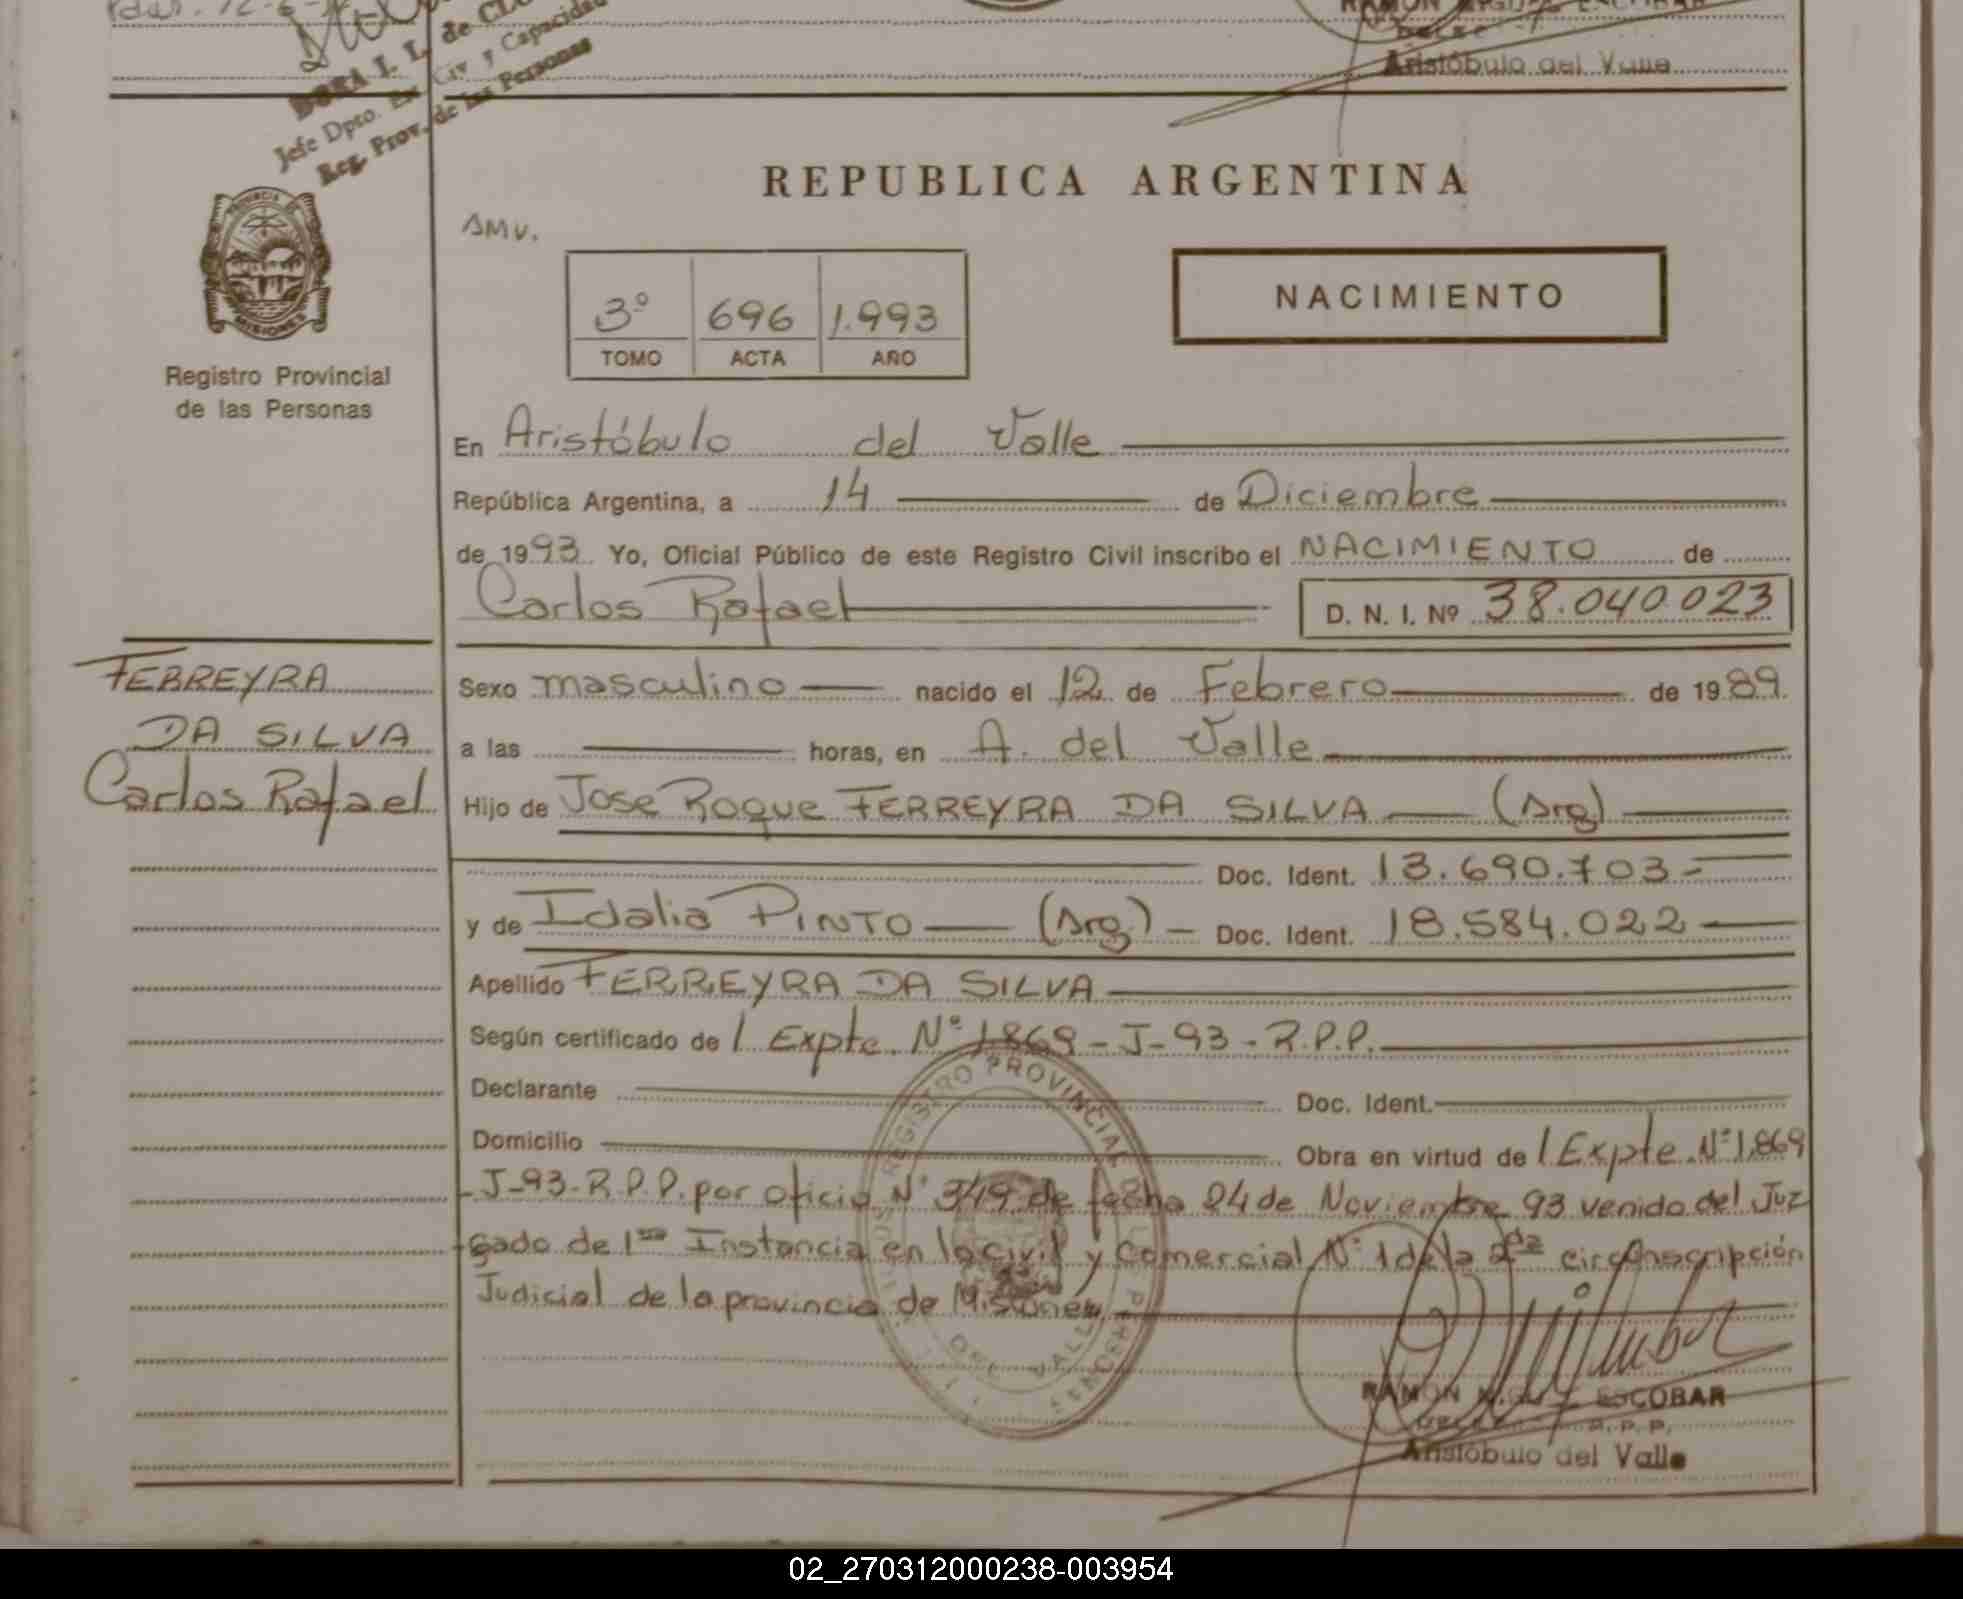 DORA I. L. de
Jefe Dpto. Civ y Capacidad
Reg. Prov. de las Personas
RAMON MIGUEL ESCOBAR
Aristóbulo del Valle
REPUBLICA ARGENTINA
AMV.
PROVINCIA DE
MISIONES
3º 696 1.993
TOMO ACTA AÑO
NACIMIENTO
Registro Provincial
de las Personas
En Aristóbulo del Valle
República Argentina, a 14 de Diciembre
de 1993. Yo, Oficial Público de este Registro Civil inscribo el NACIMIENTO de
Carlos Rafael D. N. I. Nº 38.040.023
FERREYRA
DA SILVA
Carlos Rafael
Sexo masculino nacido el 12 de Febrero de 1989.
a las horas, en A. del Valle
Hijo de Jose Roque FERREYRA DA SILVA — (Arg)
Doc. Ident. 13.690.703-
y de Idalia PINTO — (Arg) - Doc. Ident. 18.584.022
Apellido FERREYRA DA SILVA
Según certificado de / Expte. Nº 1869-J-93-R.P.P.
Declarante Doc. Ident.
Domicilio Obra en virtud de / Expte. Nº 1.869
-J-93-R.P.P. por oficio Nº 349 de fecha 24 de Noviembre 93 venido del Juz
gado de 1ra Instancia en lo civil y Comercial Nº 1 de la 2da circunscripción
Judicial de la provincia de Misiones,
REGISTRO PROVINCIAL DE LAS PERSONAS
DEL VALLE
RAMON MIGUEL ESCOBAR
R. P. P.
Aristóbulo del Valle
02_270312000238-003954